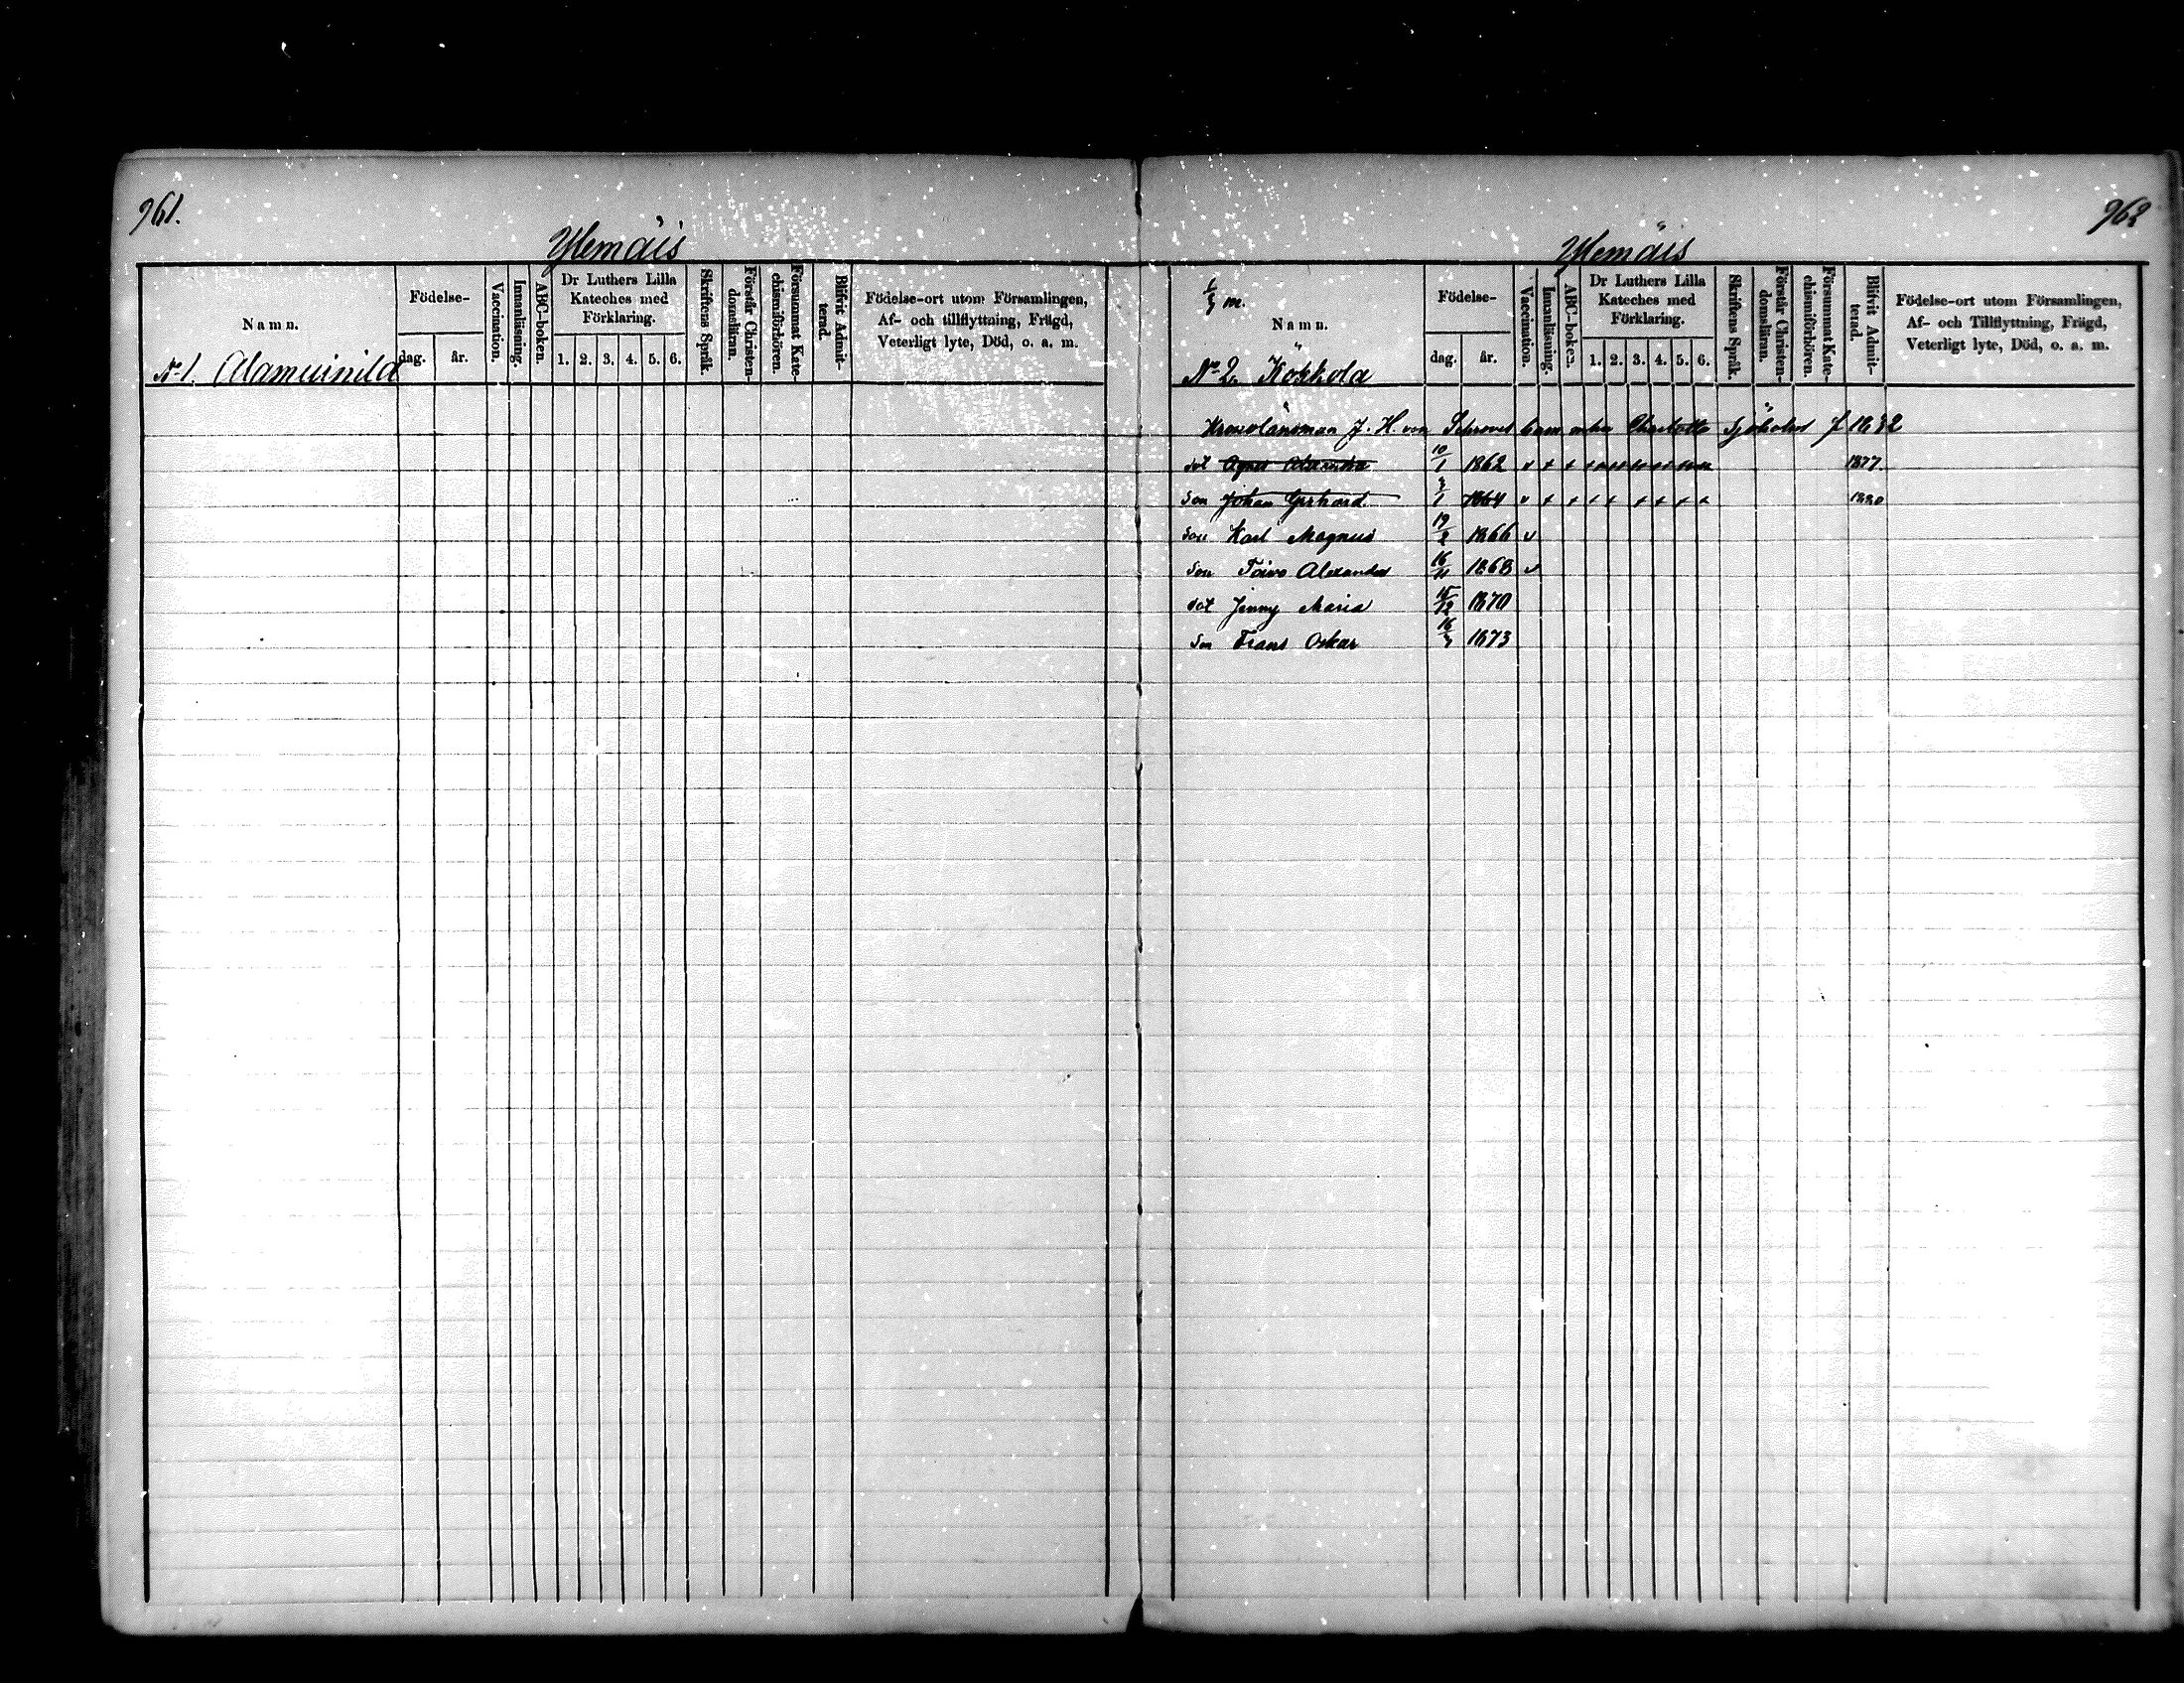 961.
Ylemäis
Namn.
Födelse-
dag. år.
Vaccination.
Innanläsning.
ABC-boken.
Dr Luthers Lilla
Kateches med
Förklaring.
1. 2. 3. 4. 5. 6.
Skriftens Språk.
Förstår Christen-
domsläran.
Försummat Kate-
chismiförhören.
Blifvit Admit-
terad.
Födelse-ort utom Församlingen,
Af- och tillflyttning, Frägd,
Veterligt lyte, Död, o. a. m.
No 1.
962
Ylemäis
m.
Namn.
No 2. Kökkola
Födelse-
dag. år.
Vaccination.
Innanläsning.
ABC-boken.
Dr Luthers Lilla
Kateches med
Förklaring.
1. 2. 3. 4. 5. 6.
Skriftens Språk.
Förstår Christen-
domsläran.
Försummat Kate-
chismiförhören.
Blifvit Admit-
terad.
Födelse-ort utom Församlingen,
Af- och Tillflyttning, Frägd,
Veterligt lyte, Död, o. a. m.
Kronolänsman J. H. von enka Charlotta Sjöholm f 1832
dot Agnes Alexandra 10/1 1862 v x x x x x x x x 1877.
son Johan Gerhard 1864 v x x x x x x x 1880
son Karl Magnus 19/2 1866 v
son Toivo Alexander 16/11 1868 v
dot Jenny Maria 15/12 1870
son Frans Oskar 1873